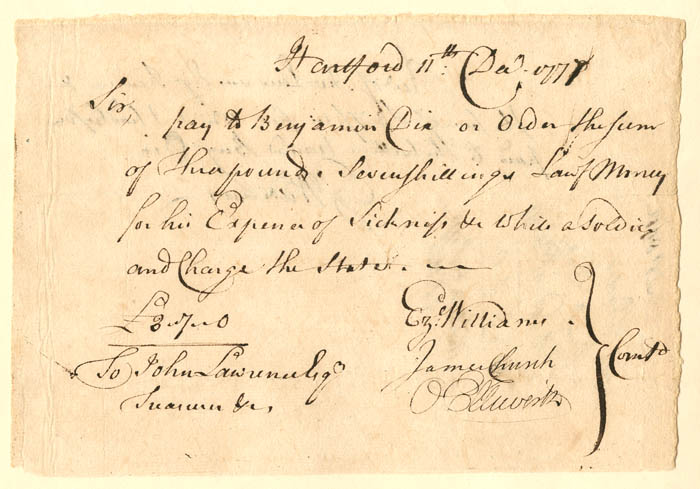 Hartford 11th Decr 1777
Sir
pay to Benjamin Dix or Order the sum
of Three pounds, Seven shillings Lawf Money
for his Expence of Sickness &c while a Soldier
and Charge the State.
£3..7..0
Ezl Williams
James Church
O Ellsworth
Comtee
To John Lawrence Esqr
Treasurer &c.